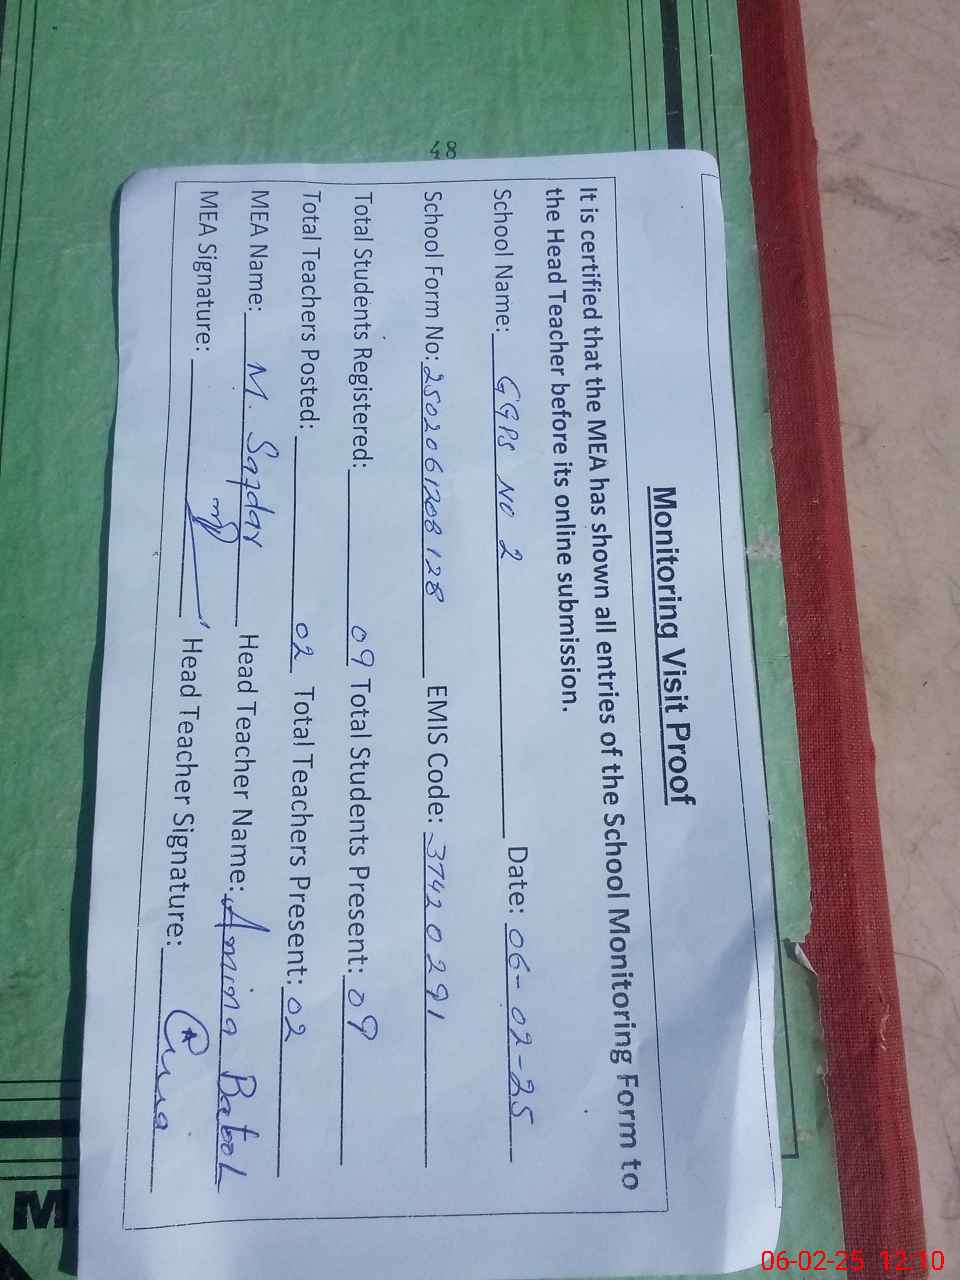 Monitoring Visit Proof
It is certified that the MEA has shown all entries of the School Monitoring Form to
the Head Teacher before its online submission.
School Name: GGPS NO 2 Date: 06-02-25
School Form No: 2502061208128 EMIS Code: 37420291
Total Students Registered: 09 Total Students Present: 09
Total Teachers Posted: 02 Total Teachers Present: 02
MEA Name: M. Safdar Head Teacher Name: Amina Batool
MEA Signature: Head Teacher Signature:
48
M
06-02-25 12:10